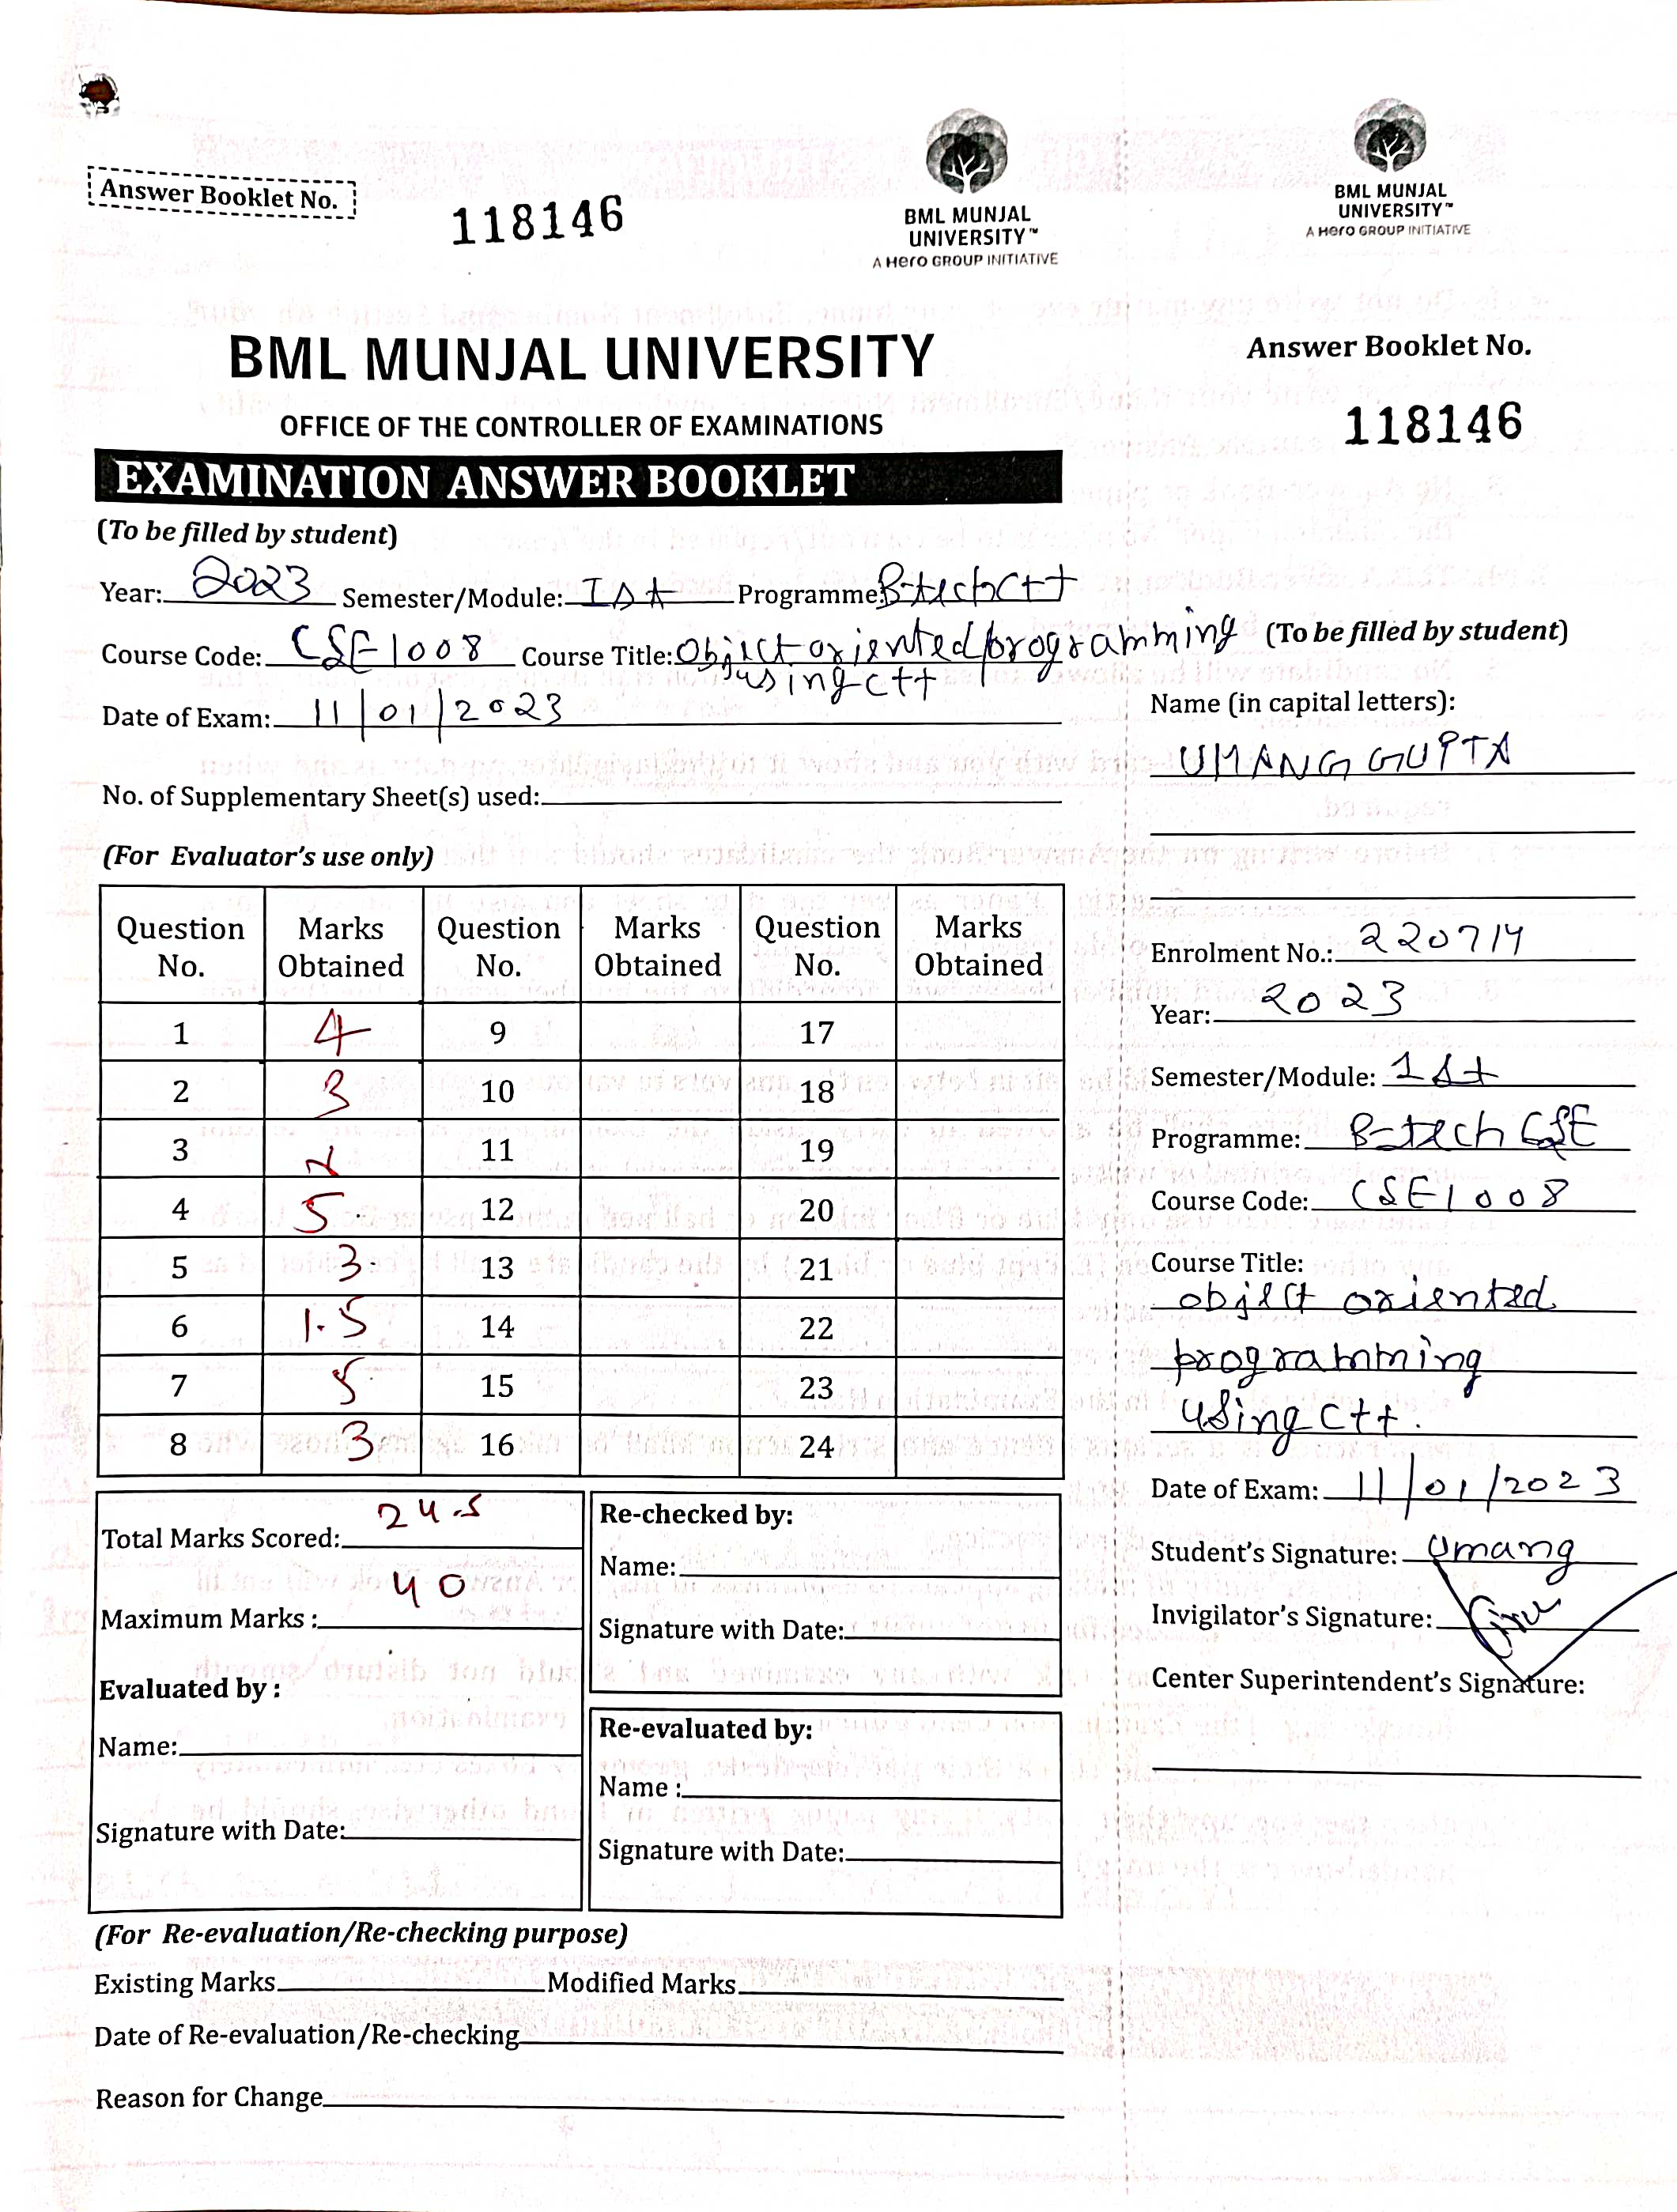 Answer Booklet No.
118146
BML MUNJAL
UNIVERSITY™
A Hero GROUP INITIATIVE
BML MUNJAL
UNIVERSITY™
A Hero GROUP INITIATIVE
BML MUNJAL UNIVERSITY
OFFICE OF THE CONTROLLER OF EXAMINATIONS
EXAMINATION ANSWER BOOKLET
(To be filled by student)
Year: 2023 Semester/Module: Ist Programme: B-tech C++
Course Code: CSE1008 Course Title: Object oriented programming
using C++
Date of Exam: 11/01/2023
No. of Supplementary Sheet(s) used:
(For Evaluator's use only)
Question No. Marks Obtained Question No. Marks Obtained Question No. Marks Obtained
1 4 9 17
2 3 10 18
3 11 19
4 5 12 20
5 3 13 21
6 1.5 14 22
7 5 15 23
8 3 16 24
Total Marks Scored: 24.5
Maximum Marks : 40
Evaluated by :
Name:
Signature with Date:
Re-checked by:
Name:
Signature with Date:
Re-evaluated by:
Name :
Signature with Date:
(For Re-evaluation/Re-checking purpose)
Existing Marks Modified Marks
Date of Re-evaluation/Re-checking
Reason for Change
Answer Booklet No.
118146
(To be filled by student)
Name (in capital letters):
UMANG GUPTA
Enrolment No.: 220714
Year: 2023
Semester/Module: 1st
Programme: B-tech CSE
Course Code: CSE1008
Course Title:
object oriented
programming
using C++.
Date of Exam: 11/01/2023
Student's Signature: Umang
Invigilator's Signature:
Center Superintendent's Signature: